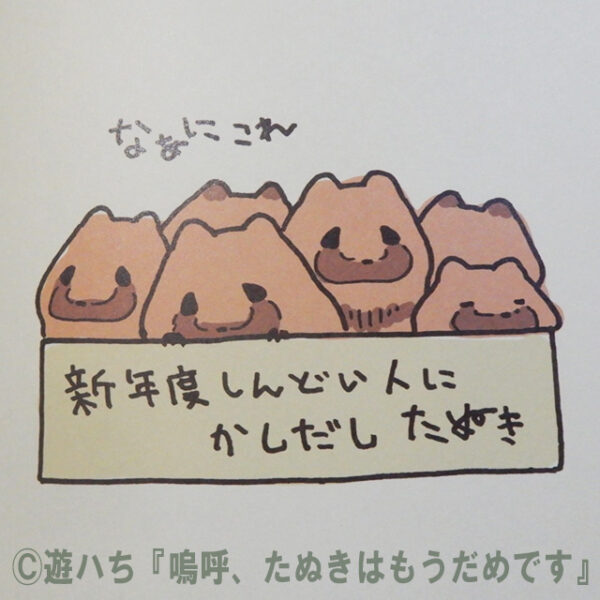 なぁにこれ
新年度しんどい人に
かしだし たぬき
©遊ハち『嗚呼、たぬきはもうだめです』